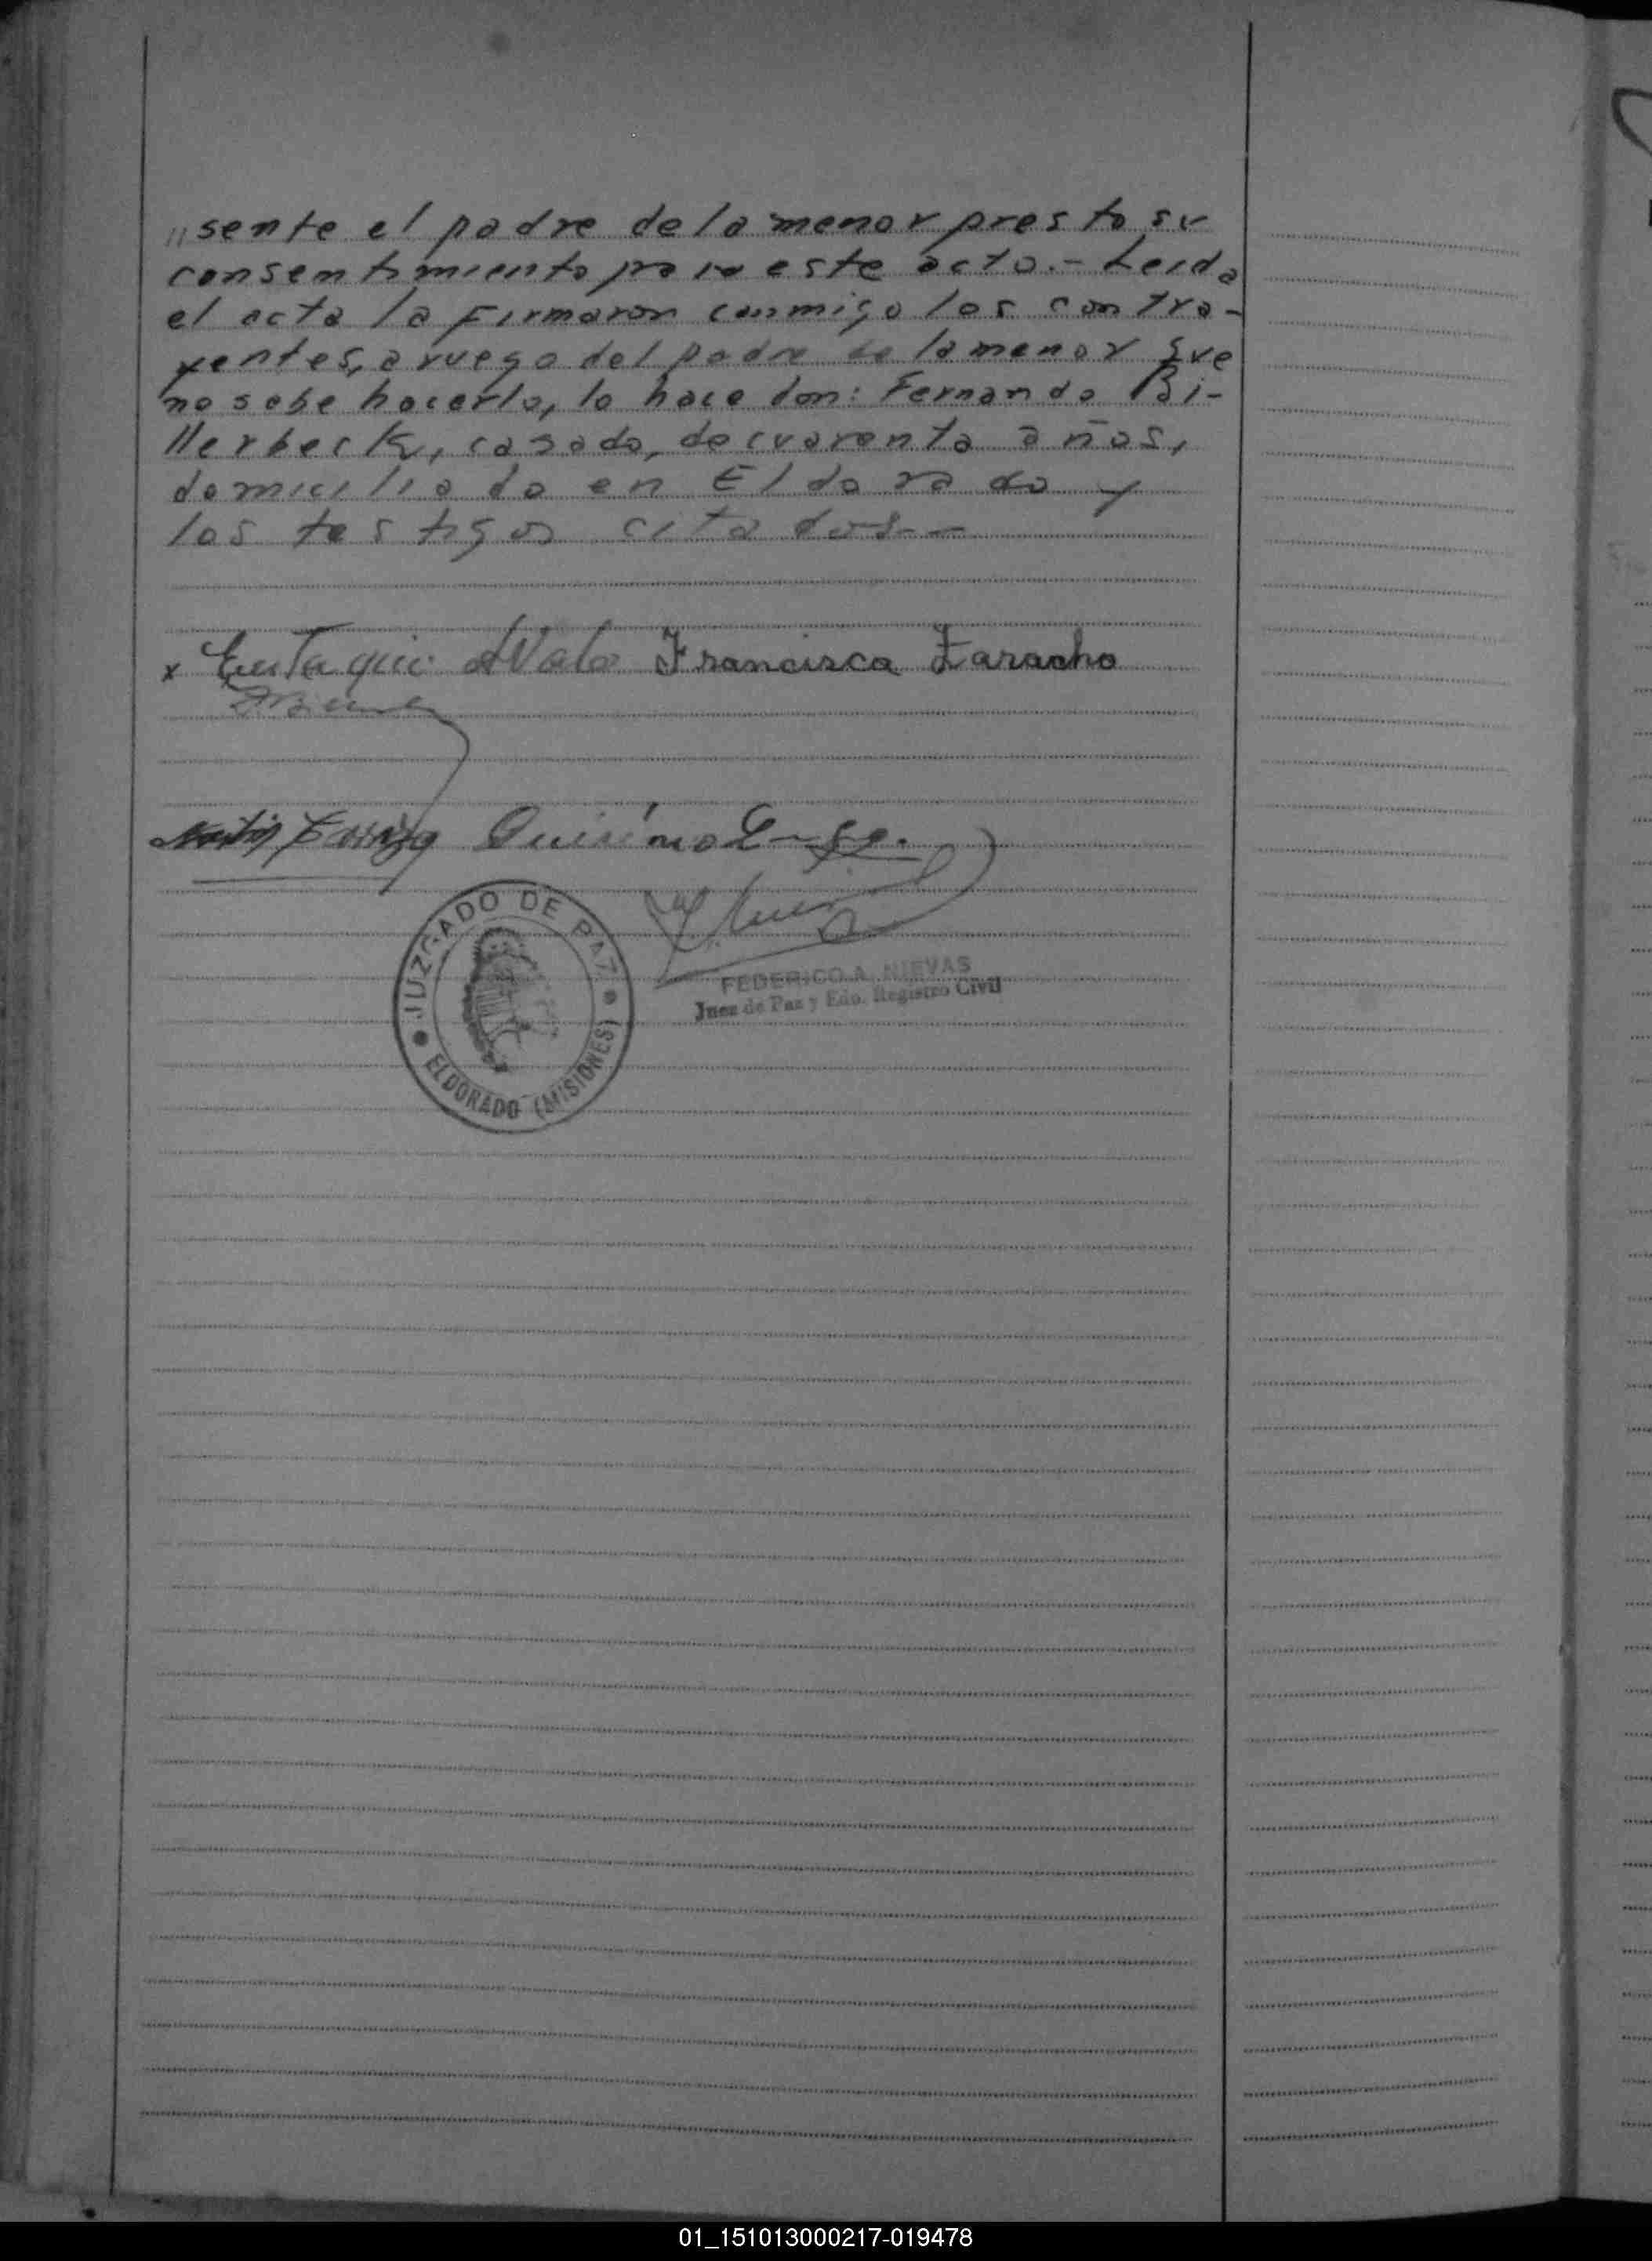 "sente el padre de la menor presto su
consentimiento para este acto.- Leida
el acta la Firmaron conmigo los contra-
yentes, a ruego del padre de la menor que
no sabe hacerlo, lo hace don: Fernando Bi-
llerbeck, casado, de cuarenta años,
domiciliado en Eldorado y
los testigos citados.-
x Eustaquio Avalo Francisca Zaracho
JUZGADO DE PAZ
ELDORADO (MISIONES)
FEDERICO A. NIEVAS
Juez de Paz y Edo. Registro Civil
01_151013000217-019478